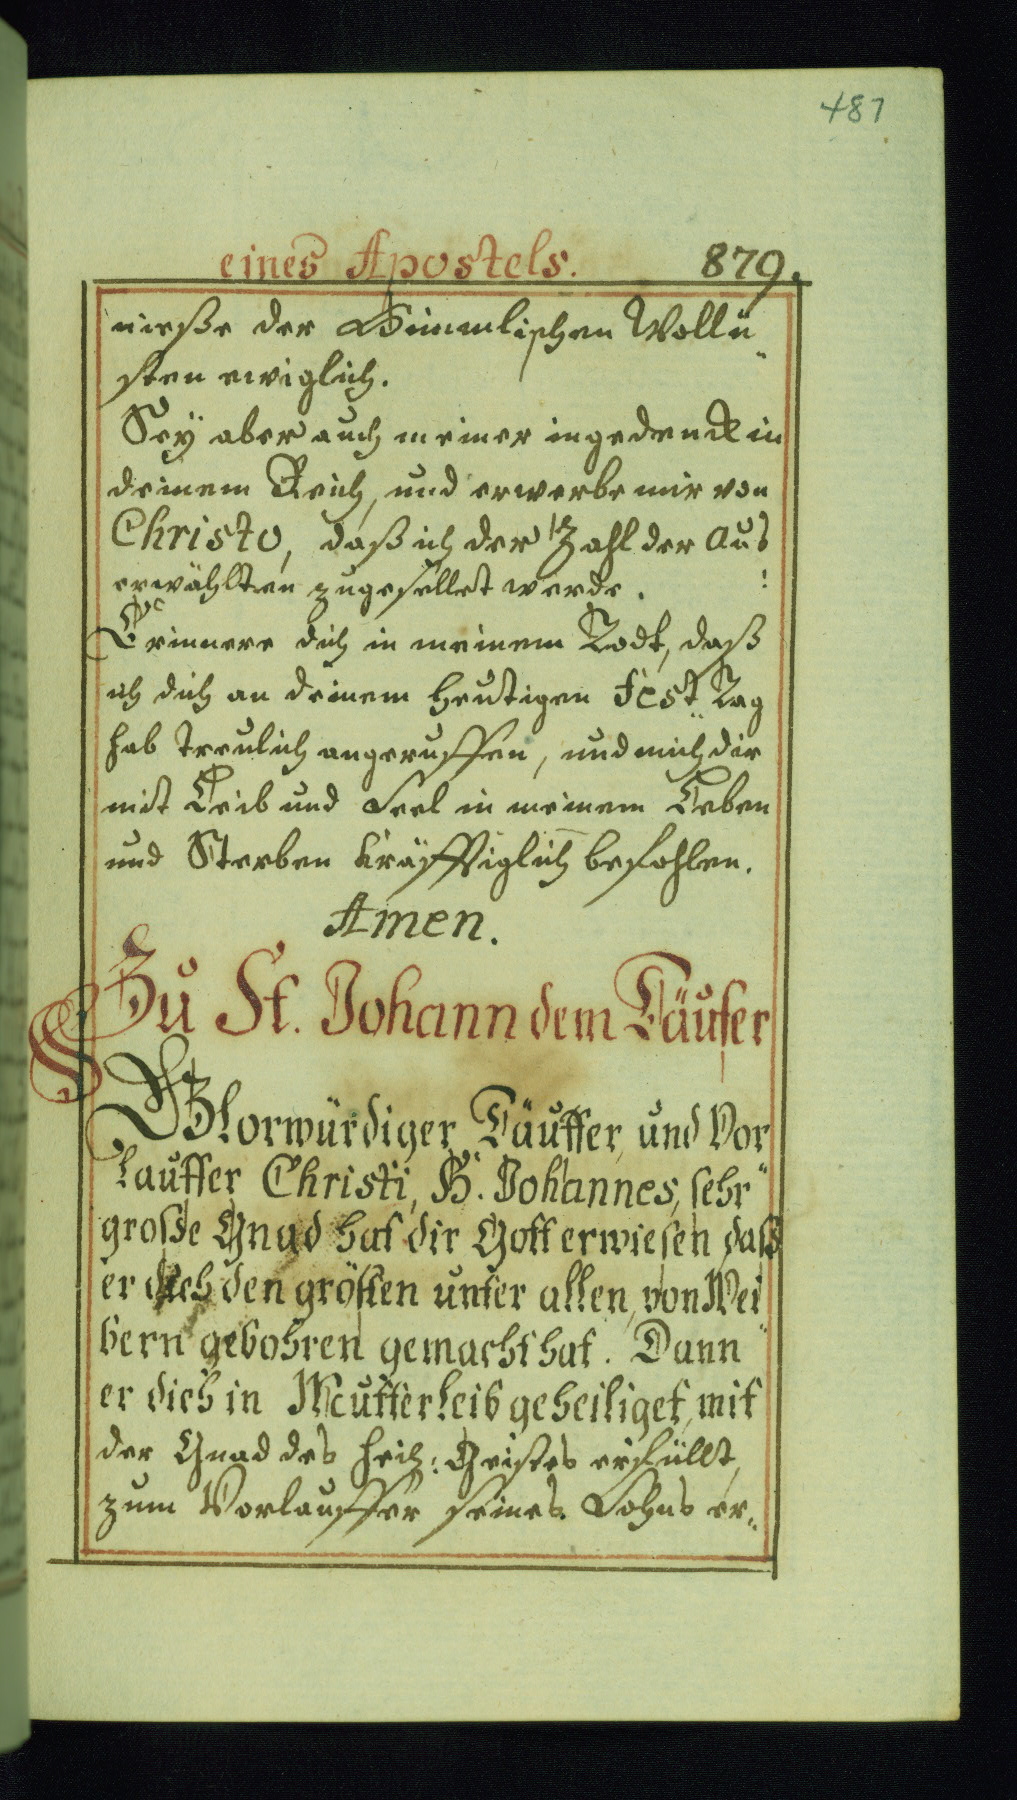 487
eines Apostels. 879.
nieße der Himmlischen Wollü„
sten ewiglich.
Sey aber auch meiner ingedenck in
deinem Reich, und erwerbe mir von
Christo, daß ich der Zahl der Aus
erwählten zugesellet werde.
Erinnere dich in meinem Todt, daß
ich dich an deinem heutigen Fest Tag
hab treulich angeruffen, und mich dir
mit Leib und Seel in meinem Leben
und Sterben kräfftiglich befohlen.
Amen.
Zu St. Johann dem Täufer
Glorwürdiger Täuffer, und Vor„
lauffer Christi, H. Johannes, sehr
große Gnad hat dir Gott erwiesen daß
er dich den grösten unter allen, von Wei„
bern gebohren gemacht hat. Dann
er dich in Mutterleib geheiliget, mit
der Gnad des heil: Geistes erfüllt,
zum Vorlauffer seines Sohns er„